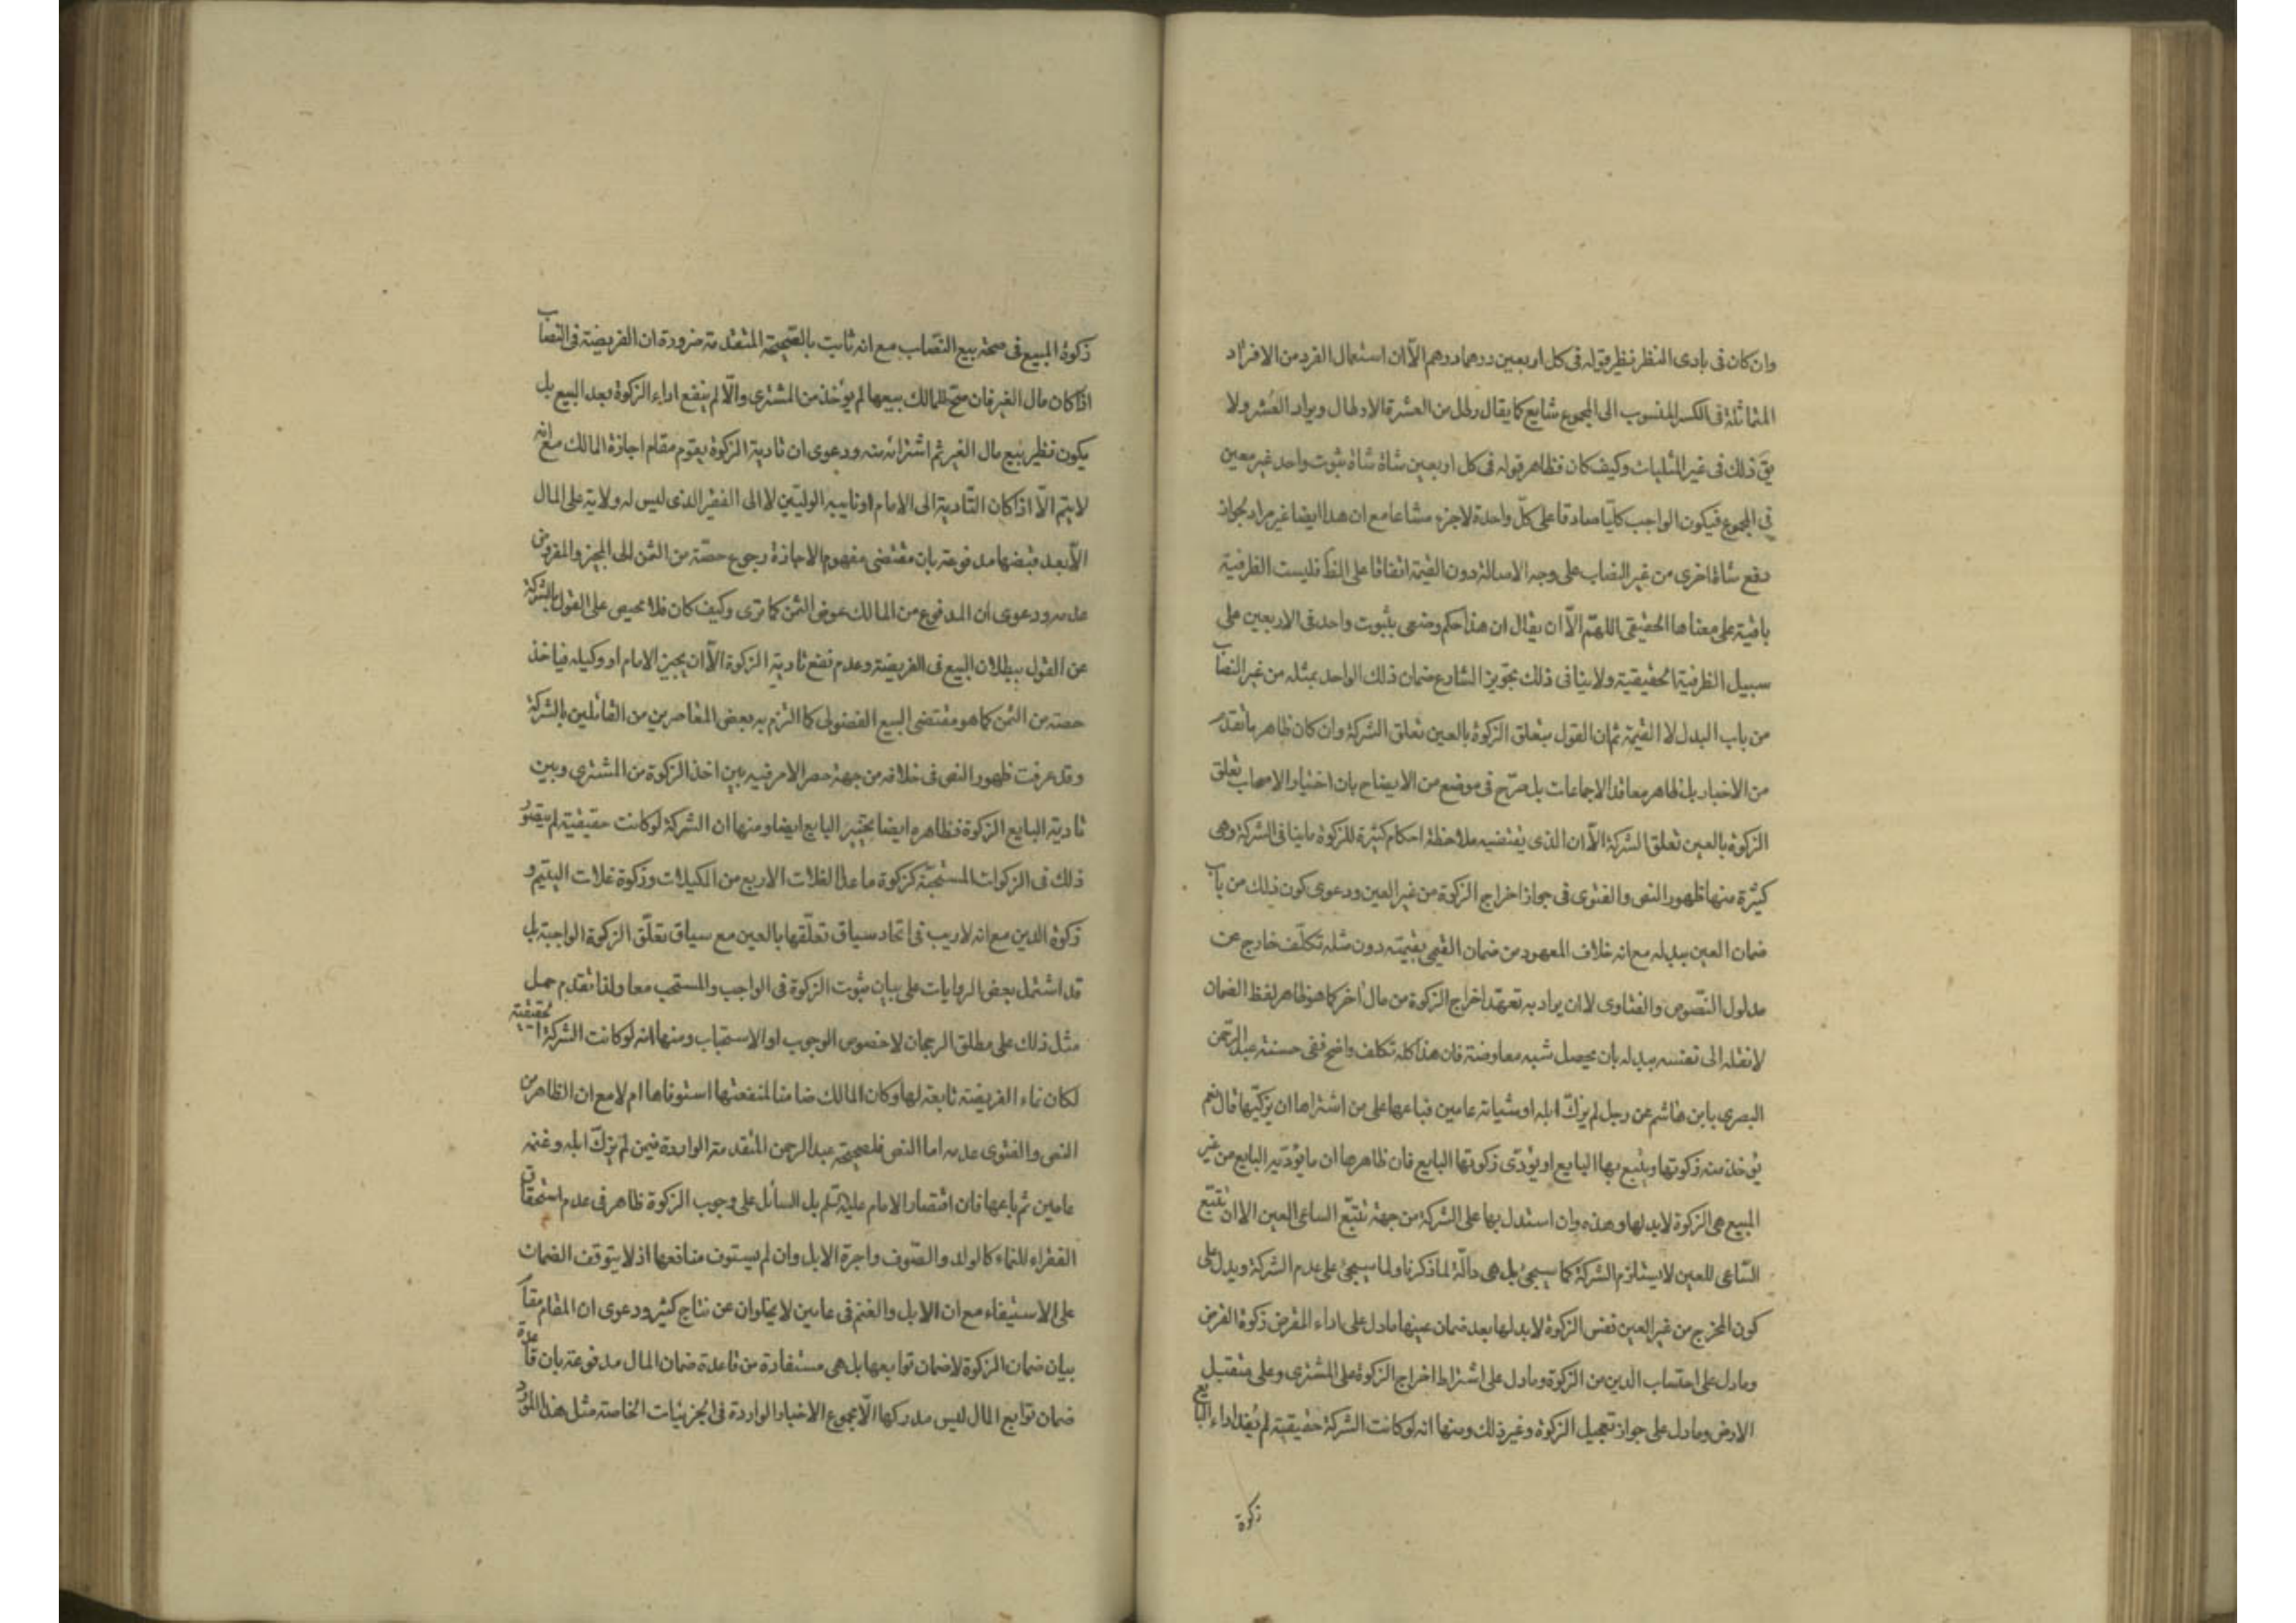 وان كان فى بادى النظر نظير قوله فى كل اربعين درهما درهم الّا ان استعمال الفرد من الافراد
المتماثلة فى الكسر المنسوب الى المجموع شايع كما يقال رطل من العشرة الارطال ويراد العشر ولا
يق ذلك فى غير المثليات وكيف كان فظاهر قوله فى كل اربعين شاة شاة ثبوت واحد غير معين
فى المجموع فيكون الواجب كليّا صادقا على كلّ واحدة لاجزء مشاعا مع ان هذا ايضا غير مراد لجواز
دفع شاة اخرى من غير النصاب على وجه الاصالة دون القيمة اتفاقا على الظ فليست الظرفية
باقية على معناها الحقيقى اللهمّ الاّ ان يقال ان هذا حكم وضعى بثبوت واحد فى الاربعين على
سبيل الظرفية الحقيقية ولا ينافى ذلك تجويز الشارع ضمان ذلك الواحد بمثله من غير النصاب
من باب البدل لا القيمة ثم ان القول بتعلق الزكوة بالعين تعلق الشركة وان كان ظاهر ما تقدم
من الاخبار بل ظاهر معاقد الاجماعات بل صرّح فى موضع من الايضاح بان اختيار الاصحاب تعلق
الزكوة بالعين تعلق الشركة الاّ ان الذى يقتضيه ملاحظة احكام كثيرة للزكوة ما ينافى الشركة وهى
كثيرة منها ظهور النص والفتوى فى جواز اخراج الزكوة من غير العين ودعوى كون ذلك من باب
ضمان العين ببدله مع انه خلاف المعهود من ضمان القيمى بقيمته دون مثله تكلّف خارج عن
مدلول النصّوص والفتاوى لا ان يراد به تعهّد اخراج الزكوة من مال اخر كما هو ظاهر لفظ الضمان
لا نقله الى نفسه ببدله بان يحصل شبه معاوضة فان هذا كله تكلف واضح ففى حسنة عبد الرّحمن
البصرى بابن هاشم عن رجل لم يزكّ ابله او شياته عامين فباعها على من اشتراها ان يزكّيها قال نعم
يؤخذ منه زكوتها ويتبع بها البايع او يؤدّى زكوتها البايع فان ظاهرها ان ما يؤدّيه البايع من غير
المبيع هى الزكوة لا بدلها وهذه وان استدل بها على الشركة من جهة تتبّع الساعى العين الا ان تتبّع
السّاعى للعين لا يستلزم الشركة كما سيجئ بل هى دالّة لما ذكرنا ولما سيجئ على عدم الشركة ويدل على
كون المخرج من غير العين نفس الزكوة لا بدلها بعد ضمان عينها مادل على اداء المقرض زكوة القرض
ومادل على احتساب الدين من الزكوة ومادل على اشتراط اخراج الزكوة على المشترى وعلى متقبل
الارض ومادل على جواز تعجيل الزكوة وغير ذلك ومنها انه لو كانت الشركة حقيقية لم يفد اداء البايع
زكوة
زكوة المبيع فى صحة بيع النصّاب مع انه ثابت بالصّحيحة المتقدمة ضرورة ان الفريضة فى النصاب
اذا كان مال الغير فان صحّ للمالك بيعها لم يؤخذ من المشترى والّا لم ينفع اداء الزكوة بعد البيع بل
يكون نظير بيع مال الغير ثم اشترائه منه ودعوى ان تادية الزكوة يقوم مقام اجازة المالك مع انه
لا يتم الاّ اذا كان التّادية الى الامام او نايبه الوليّين لا الى الفقير الذى ليس له ولاية على المال
الاّ بعد قبضها مدفوعة بان مقتضى مفهوم الاجازة رجوع حصّة من الثمن الى المجيز والمفروض
عدمه ودعوى ان المدفوع من المالك عوض الثمن كما ترى وكيف كان فلا محيص على القول بالشركة
عن القول ببطلان البيع فى الفريضة وعدم نفع تادية الزكوة الاّ ان يجيز الامام او وكيله فياخذ
حصته من الثمن كما هو مقتضى البيع الفضولى كما التزم به بعض المعاصرين من القائلين بالشركة
وقد عرفت ظهور النص فى خلافه من جهة حصر الامر فيه بين اخذ الزكوة من المشترى وبين
تادية البايع الزكوة فظاهره ايضا تخيّير البايع ايضا ومنها ان الشركة لو كانت حقيقية لم يتصوّر
ذلك فى الزكوات المستحبّة كزكوة ماعدا الغلات الاربع من المكيلات وزكوة غلات اليتيم و
زكوة الدين مع انه لا ريب فى اتحاد سياق تعلّقها بالعين مع سياق تعلّق الزكوة الواجبة بل
قد اشتمل بعض الروايات على بيان ثبوت الزكوة فى الواجب والمستحب معا ولذا تقدم حمل
مثل ذلك على مطلق الرجحان لا خصوص الوجوب او الاستحباب ومنها انه لو كانت الشركة حقيقية
لكان نماء الفريضة تابعة لها وكان المالك ضامنا لمنفعتها استوفاها ام لا مع ان الظاهر من
النص والفتوى عدمه اما النص فلصحيحة عبد الرحمن المتقدمة الواردة فيمن لم يزكّ ابله وغنمه
عامين ثم باعها فان اقتصار الامام عليه السّلم بل السائل على وجوب الزكوة ظاهر فى عدم استحقاق
الفقراء للنماء كالولد والصّوف واجرة الابل وان لم يستوف منافعها اذ لا يتوقف الضمان
على الاستيفاء مع ان الابل والغنم فى عامين لا يخلوان عن نتاج كثير ودعوى ان المقام مقام
بيان ضمان الزكوة لاضمان توابعها بل هى مستفادة من قاعدة ضمان المال مدفوعة بان قاعدة
ضمان توابع المال ليس مدركها الّا مجموع الاخبار الواردة فى الجزئيات الخاصة مثل هذا المورد